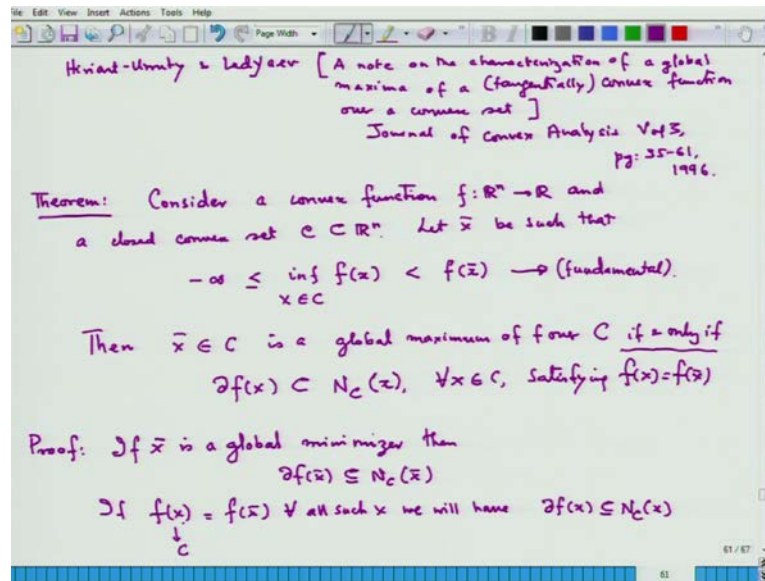 File Edit View Insert Actions Tools Help
Page Width
Hiriart-Urruty & Ledyaev [A note on the characterization of a global
maxima of a (tangentially) convex function
over a convex set]
Journal of Convex Analysis Vol 3,
pg: 55-61,
1996.
Theorem: Consider a convex function f: ℝⁿ → ℝ and
a closed convex set C ⊂ ℝⁿ. Let x̄ be such that
-∞ ≤ inf f(x) < f(x̄) → (fundamental).
x ∈ C
Then x̄ ∈ C is a global maximum of f over C if & only if
∂f(x) ⊂ N_C(x), ∀x ∈ C, satisfying f(x)=f(x̄)
Proof: If x̄ is a global minimizer then
∂f(x̄) ⊆ N_C(x̄)
If f(x) = f(x̄) ∀ all such x we will have ∂f(x) ⊆ N_C(x)
↓
C
61 / 67
61